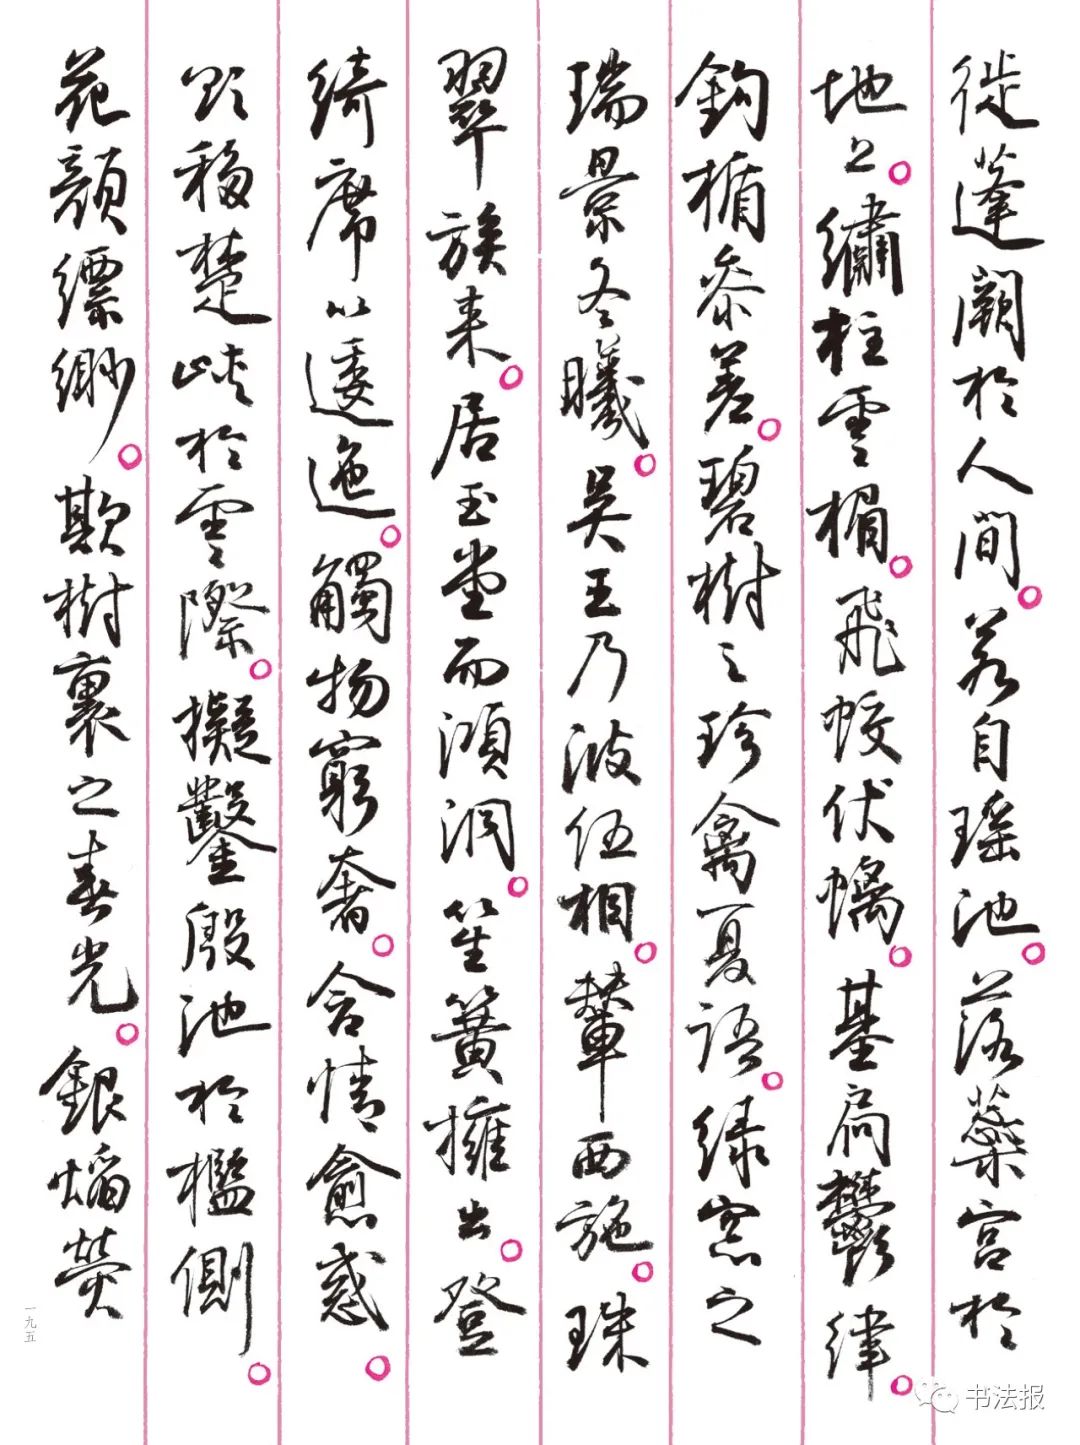 徙蓬闕於人間。若自瑤池。落蘂宮於
地上。繡柱雲楣。飛蛟伏螭。基扃鬱律。
鈎楯參差。碧樹之珍禽夏語。緑窓之
瑞景冬曦。吳王乃波伍相。輦西施。珠
翠族来。居玉堂而澒洞。笙簧擁出。登
綺席以逶迤。觸物窮奢。含情愈惑。
移楚峽於雲際。擬鑿殷池於檻側。
花顏縹緲。欺樹裏之春光。銀焰熒
一九五
书法报